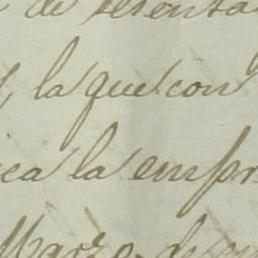 de sesenta
, la que con
ica la empr
Marzo de